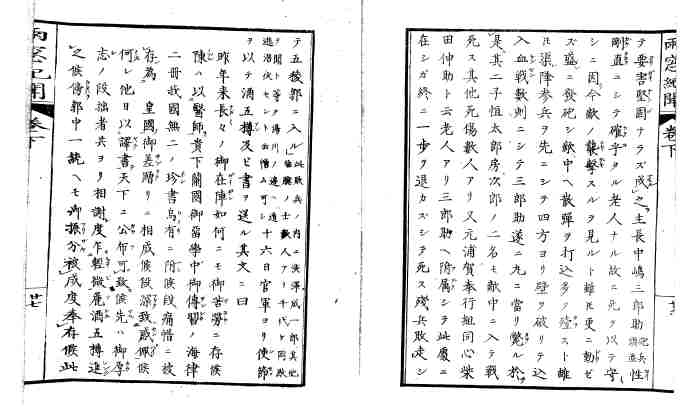 雨窓紀聞 巻下
テ要害堅固ナラズ成之主長中嶋三郎助砲兵頭並性
剛直ニシテ確乎タル老人ナル故ニ死ヲ以テ守
シニ因今敵ノ襲撃スルヲ見ルト雖モ更ニ動ゼ
ズ盛ニ發砲シ敵中ヘ散弾ヲ打込多ク殪スト雖
モ渠陣兵ヲ先ニシテ四方ヨリ壁ヲ破リテ込
入血戰數刻ニシテ三郎助遂ニ丸ニ當リ斃ル於
是其二子恒太郎房次郎ノ二名モ敵中ニ入テ戰
死ス其他死傷數人アリ又元浦賀奉行組同心柴
田伸助ト云老人アリ三郎助ヘ附属シテ此處ニ
在シガ終ニ一歩ヲ退カズシテ死ス殘兵敗走シ
テ五稜郭ニ入ル此敗兵ノ内ニ澤成一郎其他
ノ士數人アリ千代ヶ岡敗
ヲ聞ト等ク湯川ノ邊ヘ遁
逃潜伏セシト云十六日官軍ヨリ使節
ヲ以テ酒五樽及ビ書ヲ送ル其文ニ曰
昨年来長々ノ御在陣如何ニモ御苦勞ニ存候
陳ハ以醫師貴下蘭國御留學中御傳習ノ海律
二冊我國無二ノ珍書烏有ニ附候段痛惜ニ被
存為皇國御差贈リニ相成候段深致感佩候
何レ他日以譯書天下ニ公布可致候先ハ御厚
志ノ段拙者共ヨリ相謝度乍輕微麁酒五樽進
之候傳郭中一統ヘモ御振分被成度奉存候此
雨窓紀聞 巻下
廿七